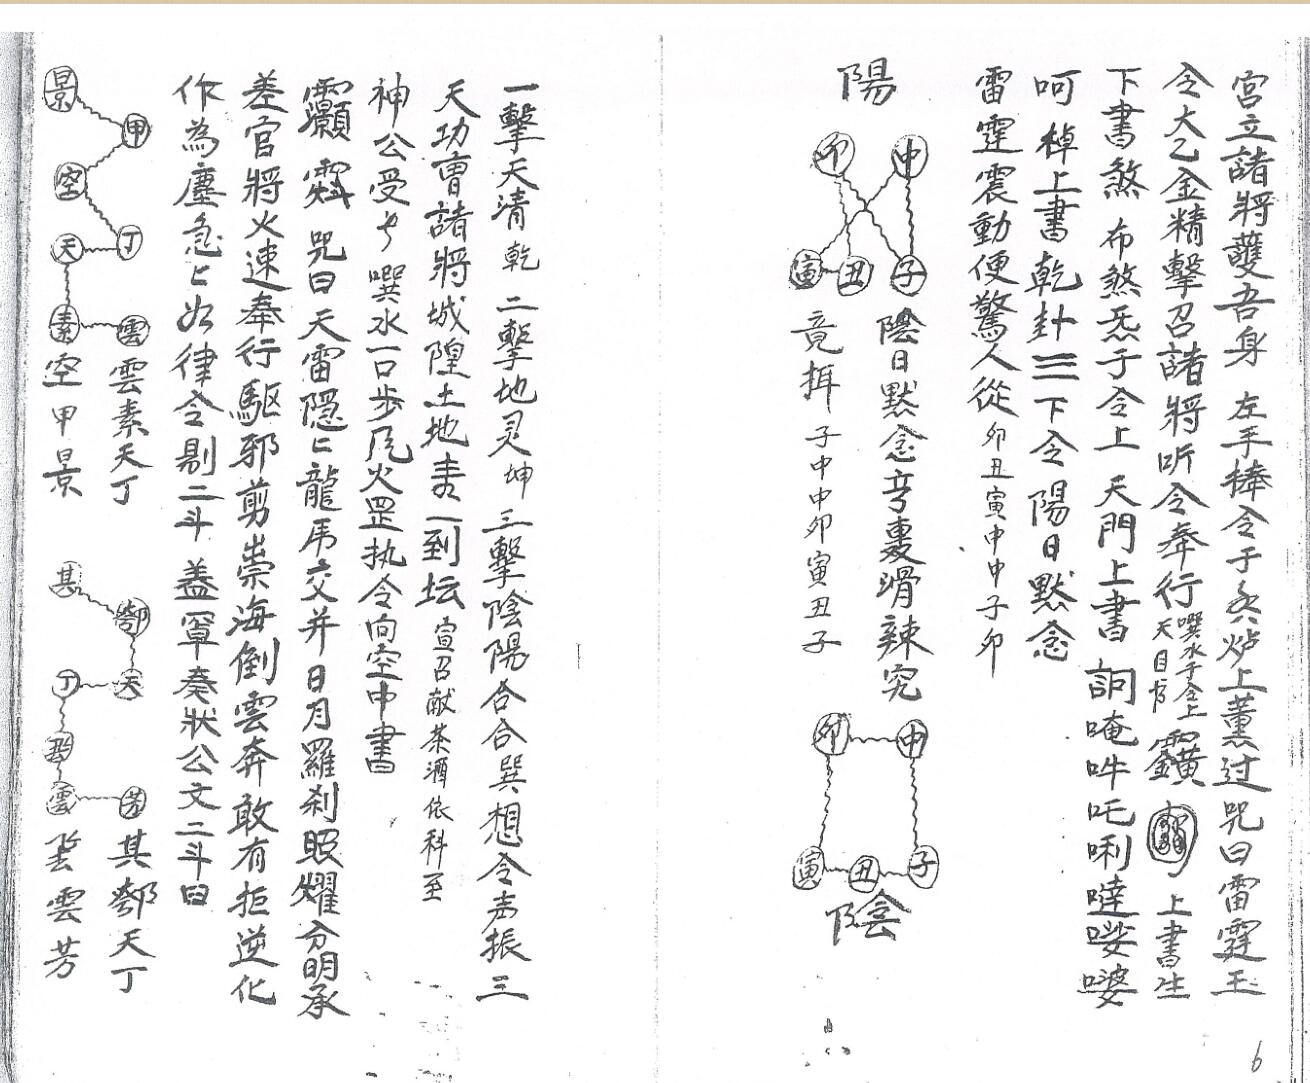 宫立諸將護吾身 左手捧令于炉上薰过 咒曰雷霆玉
令太乙金精擊召諸將听令奉行 噀水于令上 天目书 上書生
下書煞 布煞炁于令上 天門上書 唵吽吒唎噠
呵 棹上書乾卦☰下令陽日默念
雷霆震動便驚人從 卯丑寅申申子卯
陽
卯 申
寅 丑 子
陰日默念 滑辣究
竟 子申申卯寅丑子
卯 申
寅 丑 子
陰
6
一擊天清 乾 二擊地灵 坤 三擊陰陽合合巽想令声振三
天功曹諸將城隍土地 一到坛 宣召献茶酒依科至
神公受 噀水一口步 火罡执令向空中書
灝 咒曰天雷隐〻龍虎交并日月羅刹照耀分明承
差官將火速奉行驅邪剪祟海倒雲奔敢有拒逆化
作為塵急〻如律令剔二斗 盖罩奏狀公文二斗曰
景
甲
空
天 丁
素 雲
雲素天丁
空甲景
其
天
丁
雲 芳
其 天丁
雲芳